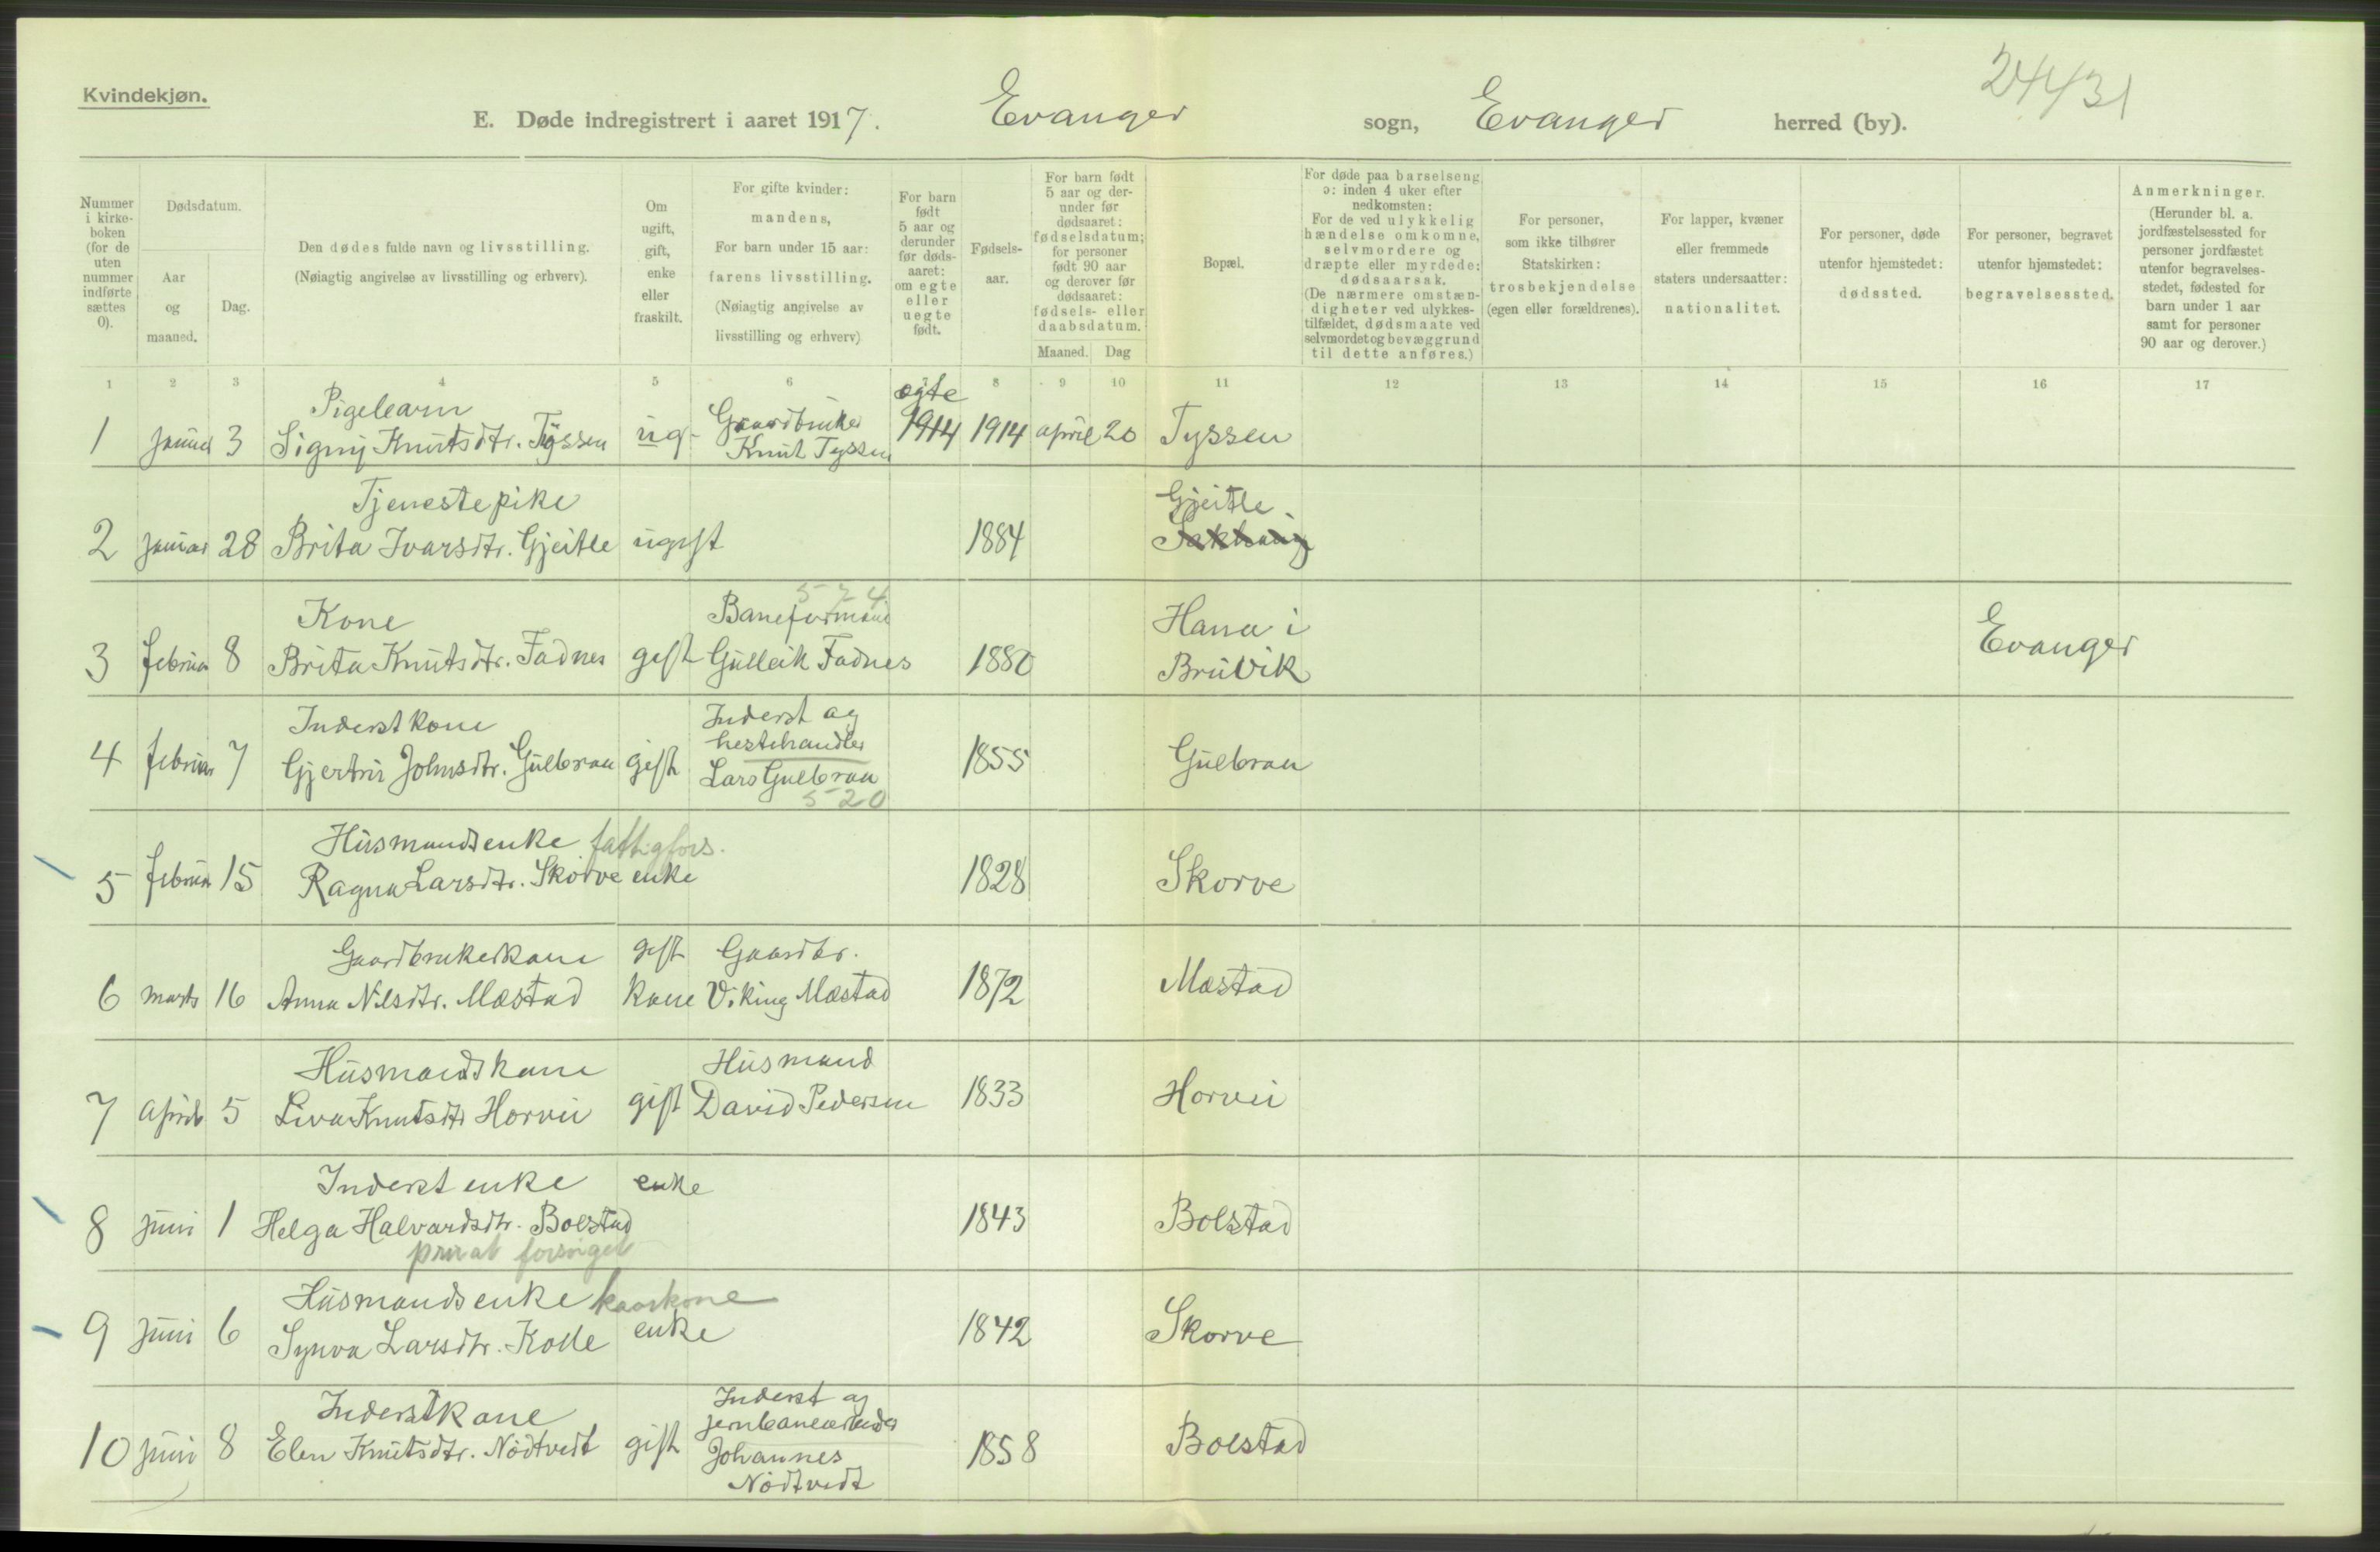 Kvindekjøn.
24431
E. Døde indregistrert i aaret 1917. Evanger sogn, Evanger herred (by).
Nummer i kirke-boken (for de uten nummer indførte sættes 0).
Dødsdatum.
Aar og maaned.
Dag.
Den dødes fulde navn og livsstilling.
(Nøiagtig angivelse av livsstilling og erhverv).
Om ugift, gift, enke eller fraskilt.
For gifte kvinder: mandens,
For barn under 15 aar: farens livsstilling.
(Nøiagtig angivelse av livsstilling og erhverv)
For barn født 5 aar og derunder før døds-aaret: om egte eller uegte født.
Fødsels-aar.
For barn født 5 aar og der-under før dødsaaret: fødselsdatum; for personer født 90 aar og derover før dødsaaret: fødsels- eller daabsdatum.
Maaned. Dag
Bopæl.
For døde paa barselseng ɔ: inden 4 uker efter nedkomsten:
For de ved ulykkelig hændelse omkomne, selvmordere og dræpte eller myrdede: dødsaarsak.
(De nærmere omstæn-digheter ved ulykkes-tilfældet, dødsmaate ved selvmordet og bevæggrund til dette anføres.)
For personer, som ikke tilhører Statskirken: trosbekjendelse (egen eller forældrenes).
For lapper, kvæner eller fremmede staters undersaatter: nationalitet.
For personer, døde utenfor hjemstedet: dødssted.
For personer, begravet utenfor hjemstedet: begravelsessted.
Anmerkninger.
(Herunder bl. a. jordfæstelsessted for personer jordfæstet utenfor begravelses-stedet, fødested for barn under 1 aar samt for personer 90 aar og derover.)
1 2 3 4 5 6 7 8 9 10 11 12 13 14 15 16 17
Pigebarn egte
1 januar 3 Signy Knutsdtr. Tyssen ug. Gaardbruker Knut Tyssen 1914 1914 april 20 Tyssen
Tjenestepike Gjeitle
2 januar 28 Brita Ivarsdtr. Gjeitle ugift 1884
Kone Baneformand 574 Hana i
3 februar 8 Brita Knutsdtr. Fadnes gift Gulleik Fadnes 1880 Bruvik Evanger
Inderstkone Inderst og hestehandler
4 februar 7 Gjertru Johnsdtr. Gulbraa gift Lars Gulbraa 1855 Gulbraa
520
Husmandsenke fattigfors.
5 februar 15 Ragna Larsdtr. Skorve enke 1828 Skorve
Gaardbrukerkone gift Gaardbr.
6 marts 16 Anna Nilsdtr. Mæstad kone Viking Mæstad 1872 Mæstad
Husmandskone Husmand
7 april 5 Liva Knutsdtr Horvei gift David Pedersen 1833 Horvei
Inderst enke enke
8 juni 1 Helga Halvardsdtr. Bolstad 1843 Bolstad
privat forsørget
Husmandsenke kaarkone
9 juni 6 Synva Larsdtr. Kolle enke 1842 Skorve
Inderstkone Inderst og jernbanearbeider
10 juni 8 Elen Knutsdtr. Nødtvedt gift Johannes Nødtvedt 1858 Bolstad